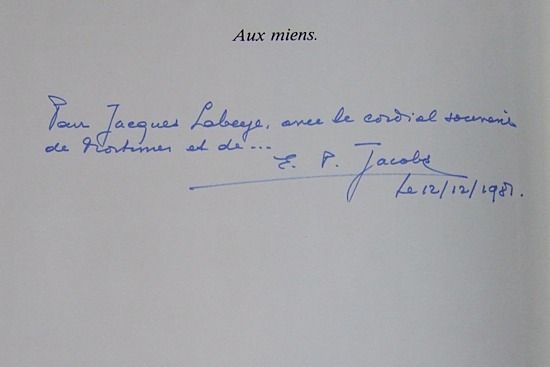 Aux miens.
Pour Jacques Labeye, avec le cordial souvenir
de Mortimer et de...
E. P. Jacobs
Le 12/12/1981.